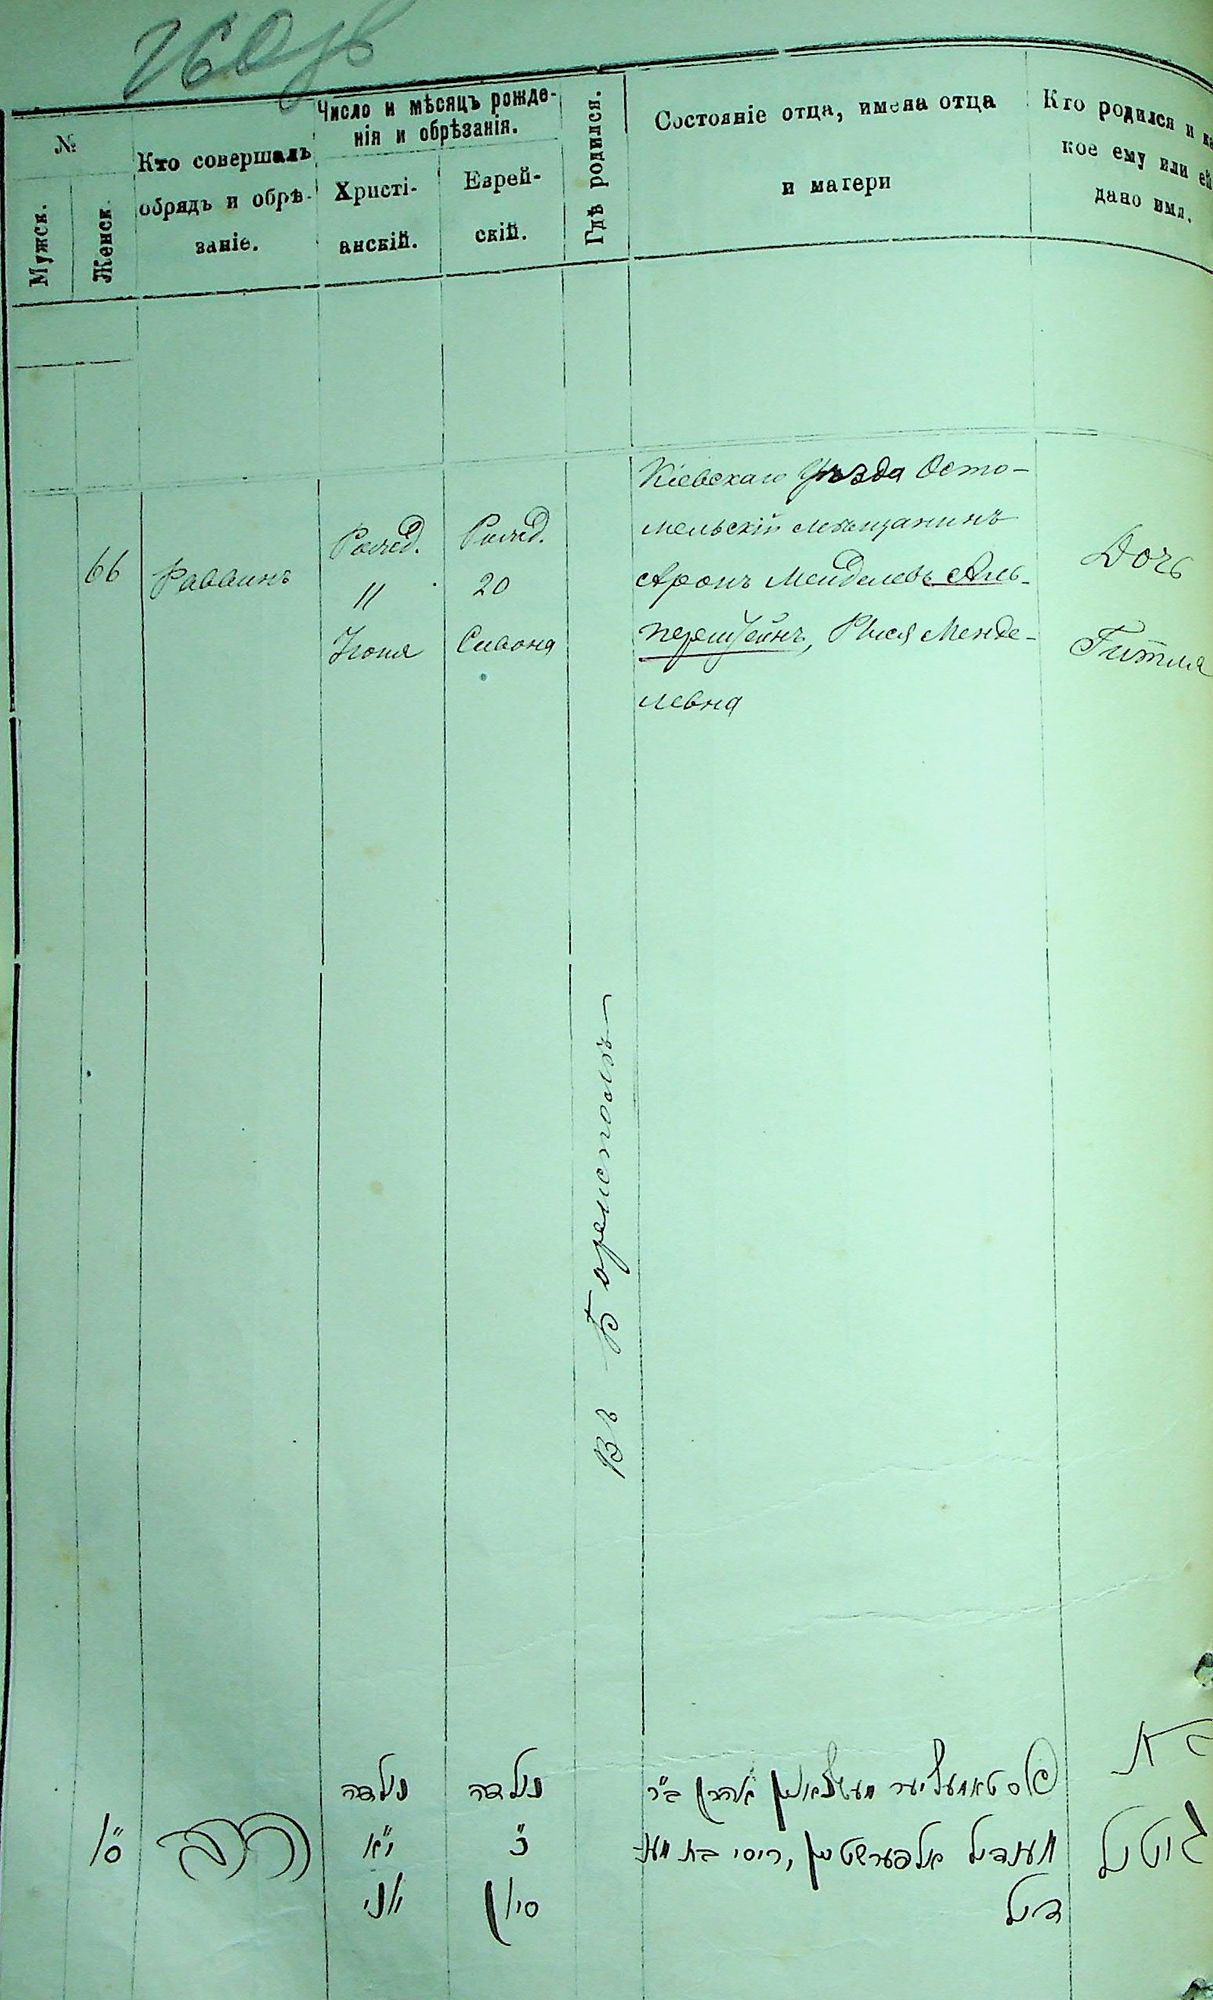 №
Мужск.
Женск.
Кто совершалъ
обрядъ и обрѣ-
заніе.
Число и мѣсяцъ рожде-
нія и обрѣзанія.
Христі-
анскій.
Еврей-
скій.
Гдѣ родился.
Состояніе отца, имена отца
и матери
Кто родился и ка
кое ему или ей
дано имя.
66
Раввинъ
Рожд.
11
Іюня
Рожд.
20
Сивона
Въ Борисполѣ
Кіевскаго Уѣзда Осто-
мельскій мѣщанинъ
Аронъ Менделевъ Аль-
перштейнъ, Рыся Менде-
левна
Дочь
Гитля
ס"ו
הרב
נולדה
י"א
יוני
נולדה
כ'
סיון
מעשצאנין אהרן ב"ר
מענדיל אלפערשטיין, ריסי בת מענ
דיל
בת
גיטיל